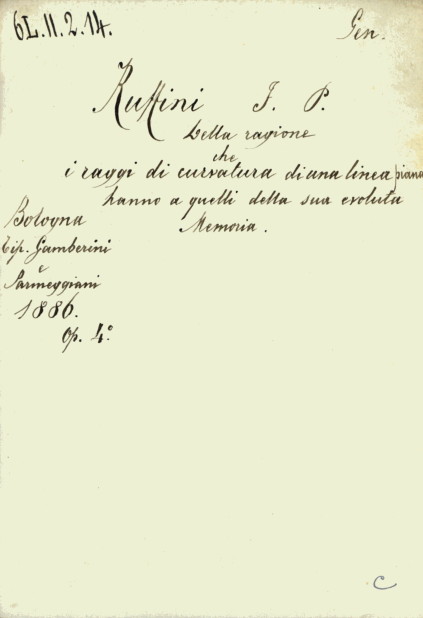 6L.II.2.14. Gen.
Ruffini F. P.
Della ragione
che
i raggi di curvatura di una linea piana
hanno a quelli della sua evoluta
Memoria.
Bologna
Tip. Gamberini
e
Parmeggiani
1886.
Op. 4°.
C